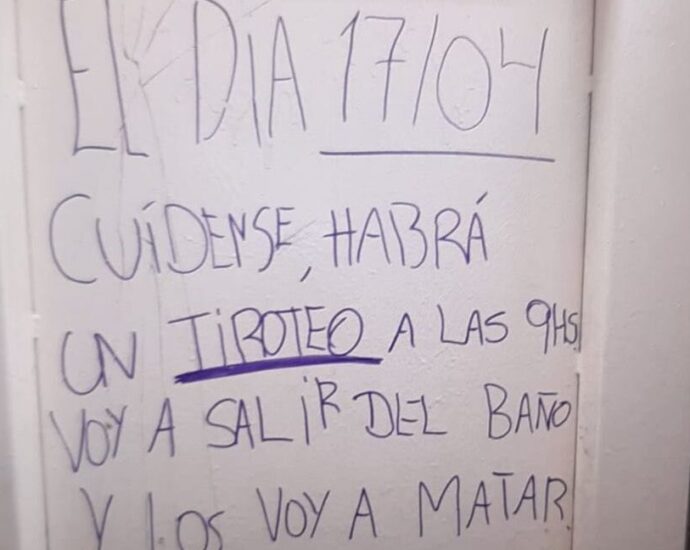 EL DIA 17/04
CUÍDENSE, HABRÁ
UN TIROTEO A LAS 9HS
VOY A SALIR DEL BAÑO
Y LOS VOY A MATAR